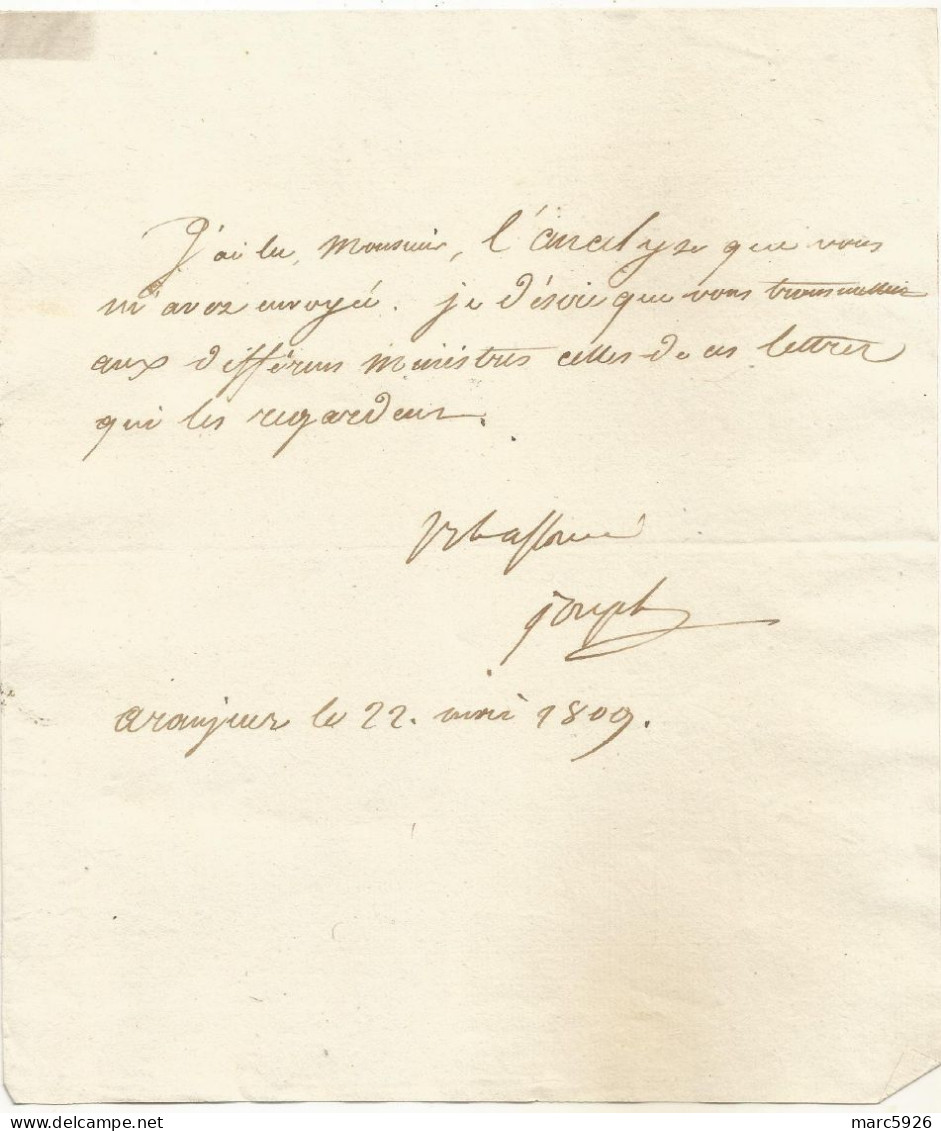 J'ai lu, Monsieur, l'analyse que vous
m'avez envoyé. je désire que vous transmettiez
aux différens Ministres celles de ces lettres
qui les regardent.
Votre affectionné
Joseph
aranjuez le 22. mai 1809.
marc5926